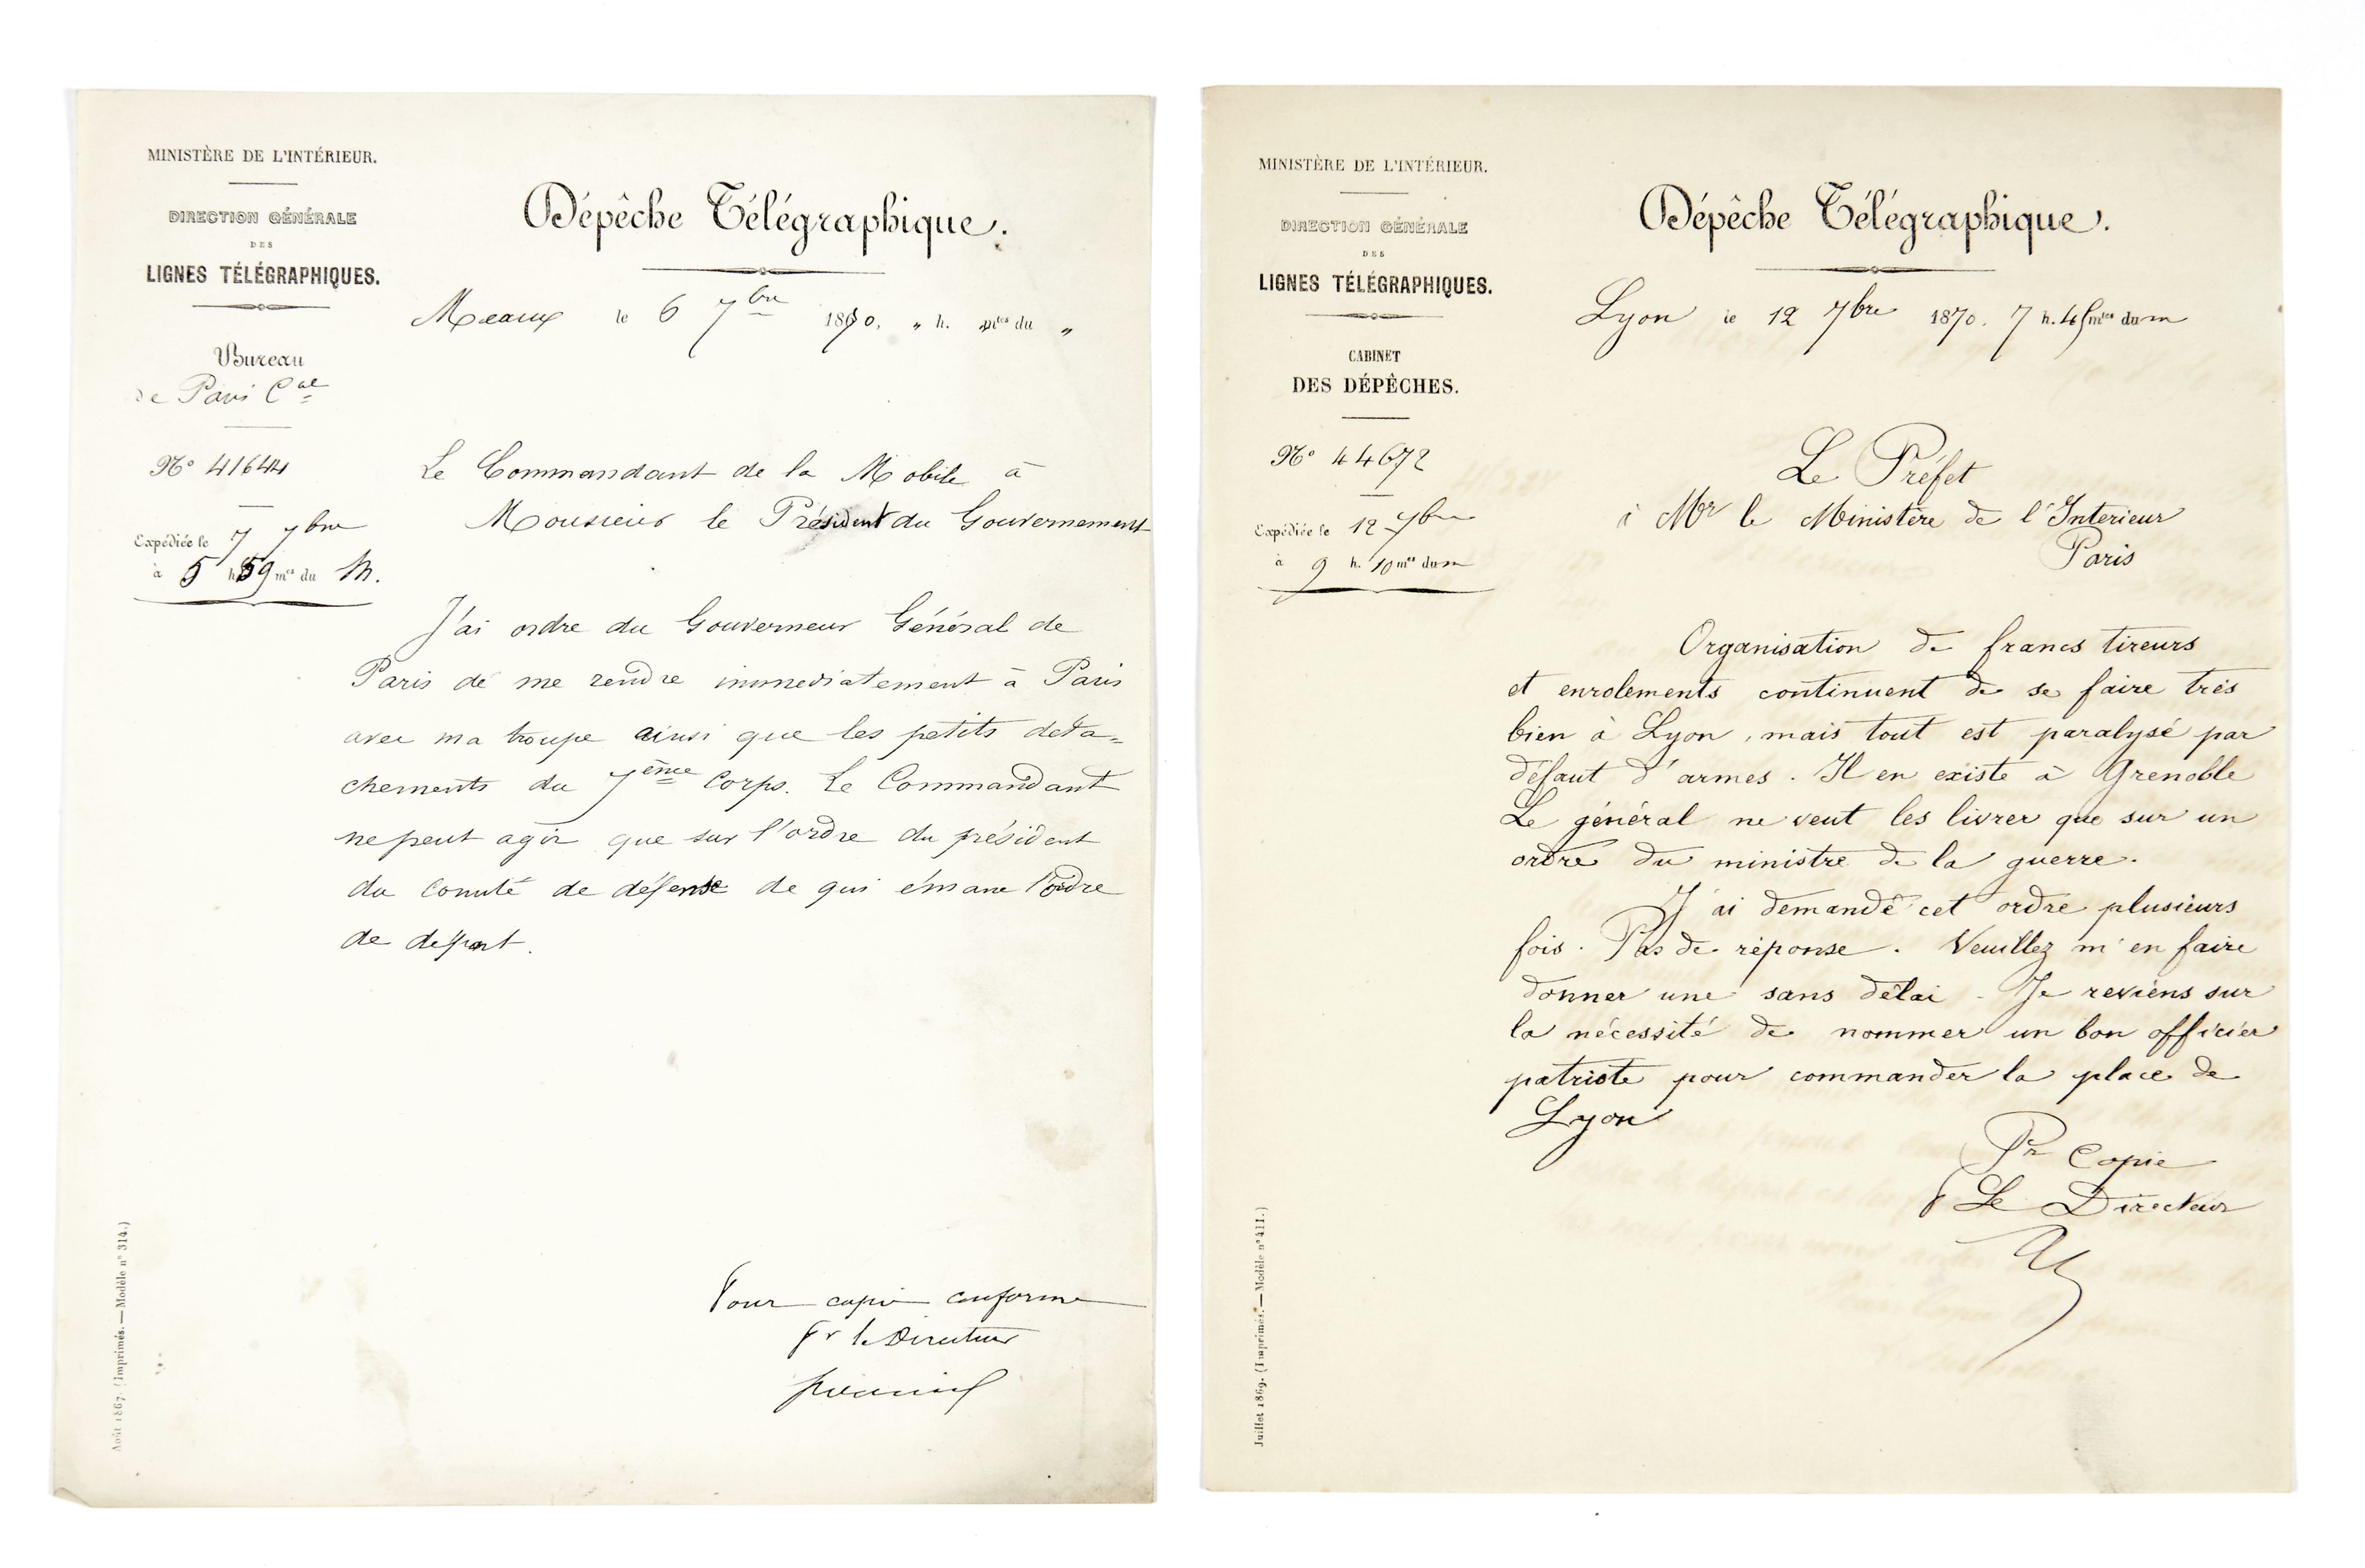 MINISTÈRE DE L'INTÉRIEUR.
DIRECTION GÉNÉRALE
DES
LIGNES TÉLÉGRAPHIQUES.
Bureau
de Paris Cal
No 41644
Expédiée le 7 7bre
à 5 h 59 mes du M.
Dépêche Télégraphique.
Meaux le 6 7bre 1870, " h. mtes du "
Le Commandant de la Mobile à
Monsieur le Président du Gouvernement
J'ai ordre du Gouverneur Général de
Paris de me rendre immediatement à Paris
avec ma troupe ainsi que les petits déta=
chements du 7ème Corps. Le Commandant
ne peut agir que sur l'ordre du président
du Comité de défense de qui émane l'ordre
de départ.
Pour copie conforme
Pr le Directeur
Août 1867. (Imprimés.—Modèle n° 314.)
MINISTÈRE DE L'INTÉRIEUR.
DIRECTION GÉNÉRALE
DES
LIGNES TÉLÉGRAPHIQUES.
CABINET
DES DÉPÊCHES.
No 44672
Expédiée le 12 7bre
à 9 h. 10 mes du m
Dépêche Télégraphique.
Lyon le 12 7bre 1870. 7 h. 45 mtes du m
Le Préfet
à Mr le Ministère de l'Interieur
Paris
Organisation de francs tireurs
et enrolements continuent de se faire très
bien à Lyon, mais tout est paralysé par
défaut d'armes. Il en existe à Grenoble
Le général ne veut les livrer que sur un
ordre du ministre de la guerre.
J'ai demandé cet ordre plusieurs
fois. Pas de réponse. Veuillez m'en faire
donner une sans délai. Je reviens sur
la nécessité de nommer un bon officier
patriote pour commander la place de
Lyon
Pr Copie
Le Directeur
Juillet 1869. (Imprimés.—Modèle n° 411.)